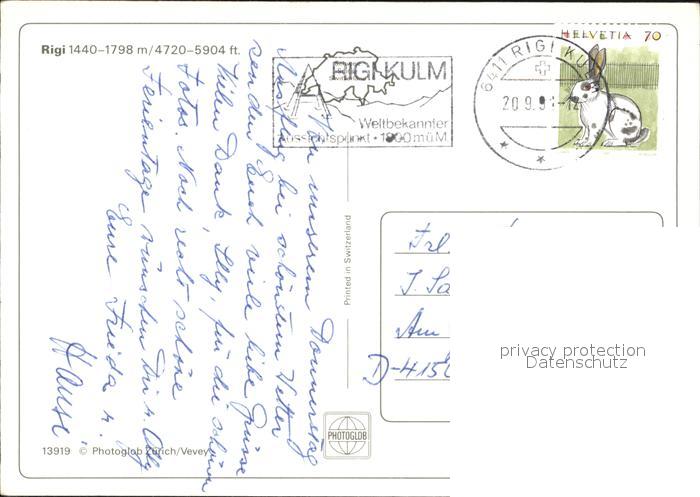 Rigi 1440-1798 m/4720-5904 ft.
RIGI KULM
Weltbekannter
Aussichtspunkt • 1800 m ü M.
6411 RIGI KU
20.9.9
HELVETIA 70
Von unserem Donnerstag
Ausflug bei schönstem Wetter
senden Euch viele liebe Grüsse
Vielen Dank, Elly, für die schönen
Fotos. Noch recht schöne
Ferientage wünschen Dir u. Olly
Eure Frieda u.
Hansi
Printed in Switzerland
Frl.
J. Sa
Am
D-4150
privacy protection
Datenschutz
PHOTOGLOB
13919 © Photoglob Zürich/Vevey